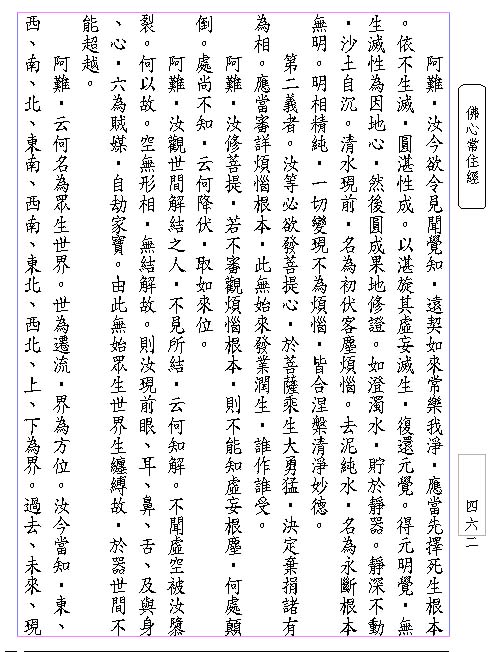 佛心常住經
四六二
阿難．汝今欲令見聞覺知．遠契如來常樂我淨．應當先擇死生根本
。依不生滅．圓湛性成。以湛旋其虛妄滅生．復還元覺。得元明覺．無
生滅性為因地心．然後圓成果地修證。如澄濁水．貯於靜器。靜深不動
．沙土自沉。清水現前．名為初伏客塵煩惱。去泥純水．名為永斷根本
無明。明相精純．一切變現不為煩惱．皆合涅槃清淨妙德。
第二義者。汝等必欲發菩提心．於菩薩乘生大勇猛．決定棄捐諸有
為相。應當審詳煩惱根本．此無始來發業潤生．誰作誰受。
阿難．汝修菩提．若不審觀煩惱根本．則不能知虛妄根塵．何處顛
倒。處尚不知．云何降伏．取如來位。
阿難．汝觀世間解結之人．不見所結．云何知解。不聞虛空被汝隳
裂。何以故。空無形相．無結解故。則汝現前眼、耳、鼻、舌、及與身
、心．六為賊媒．自劫家寶。由此無始眾生世界生纏縛故．於器世間不
能超越。
阿難．云何名為眾生世界。世為遷流．界為方位。汝今當知．東、
西、南、北、東南、西南、東北、西北、上、下為界。過去、未來、現